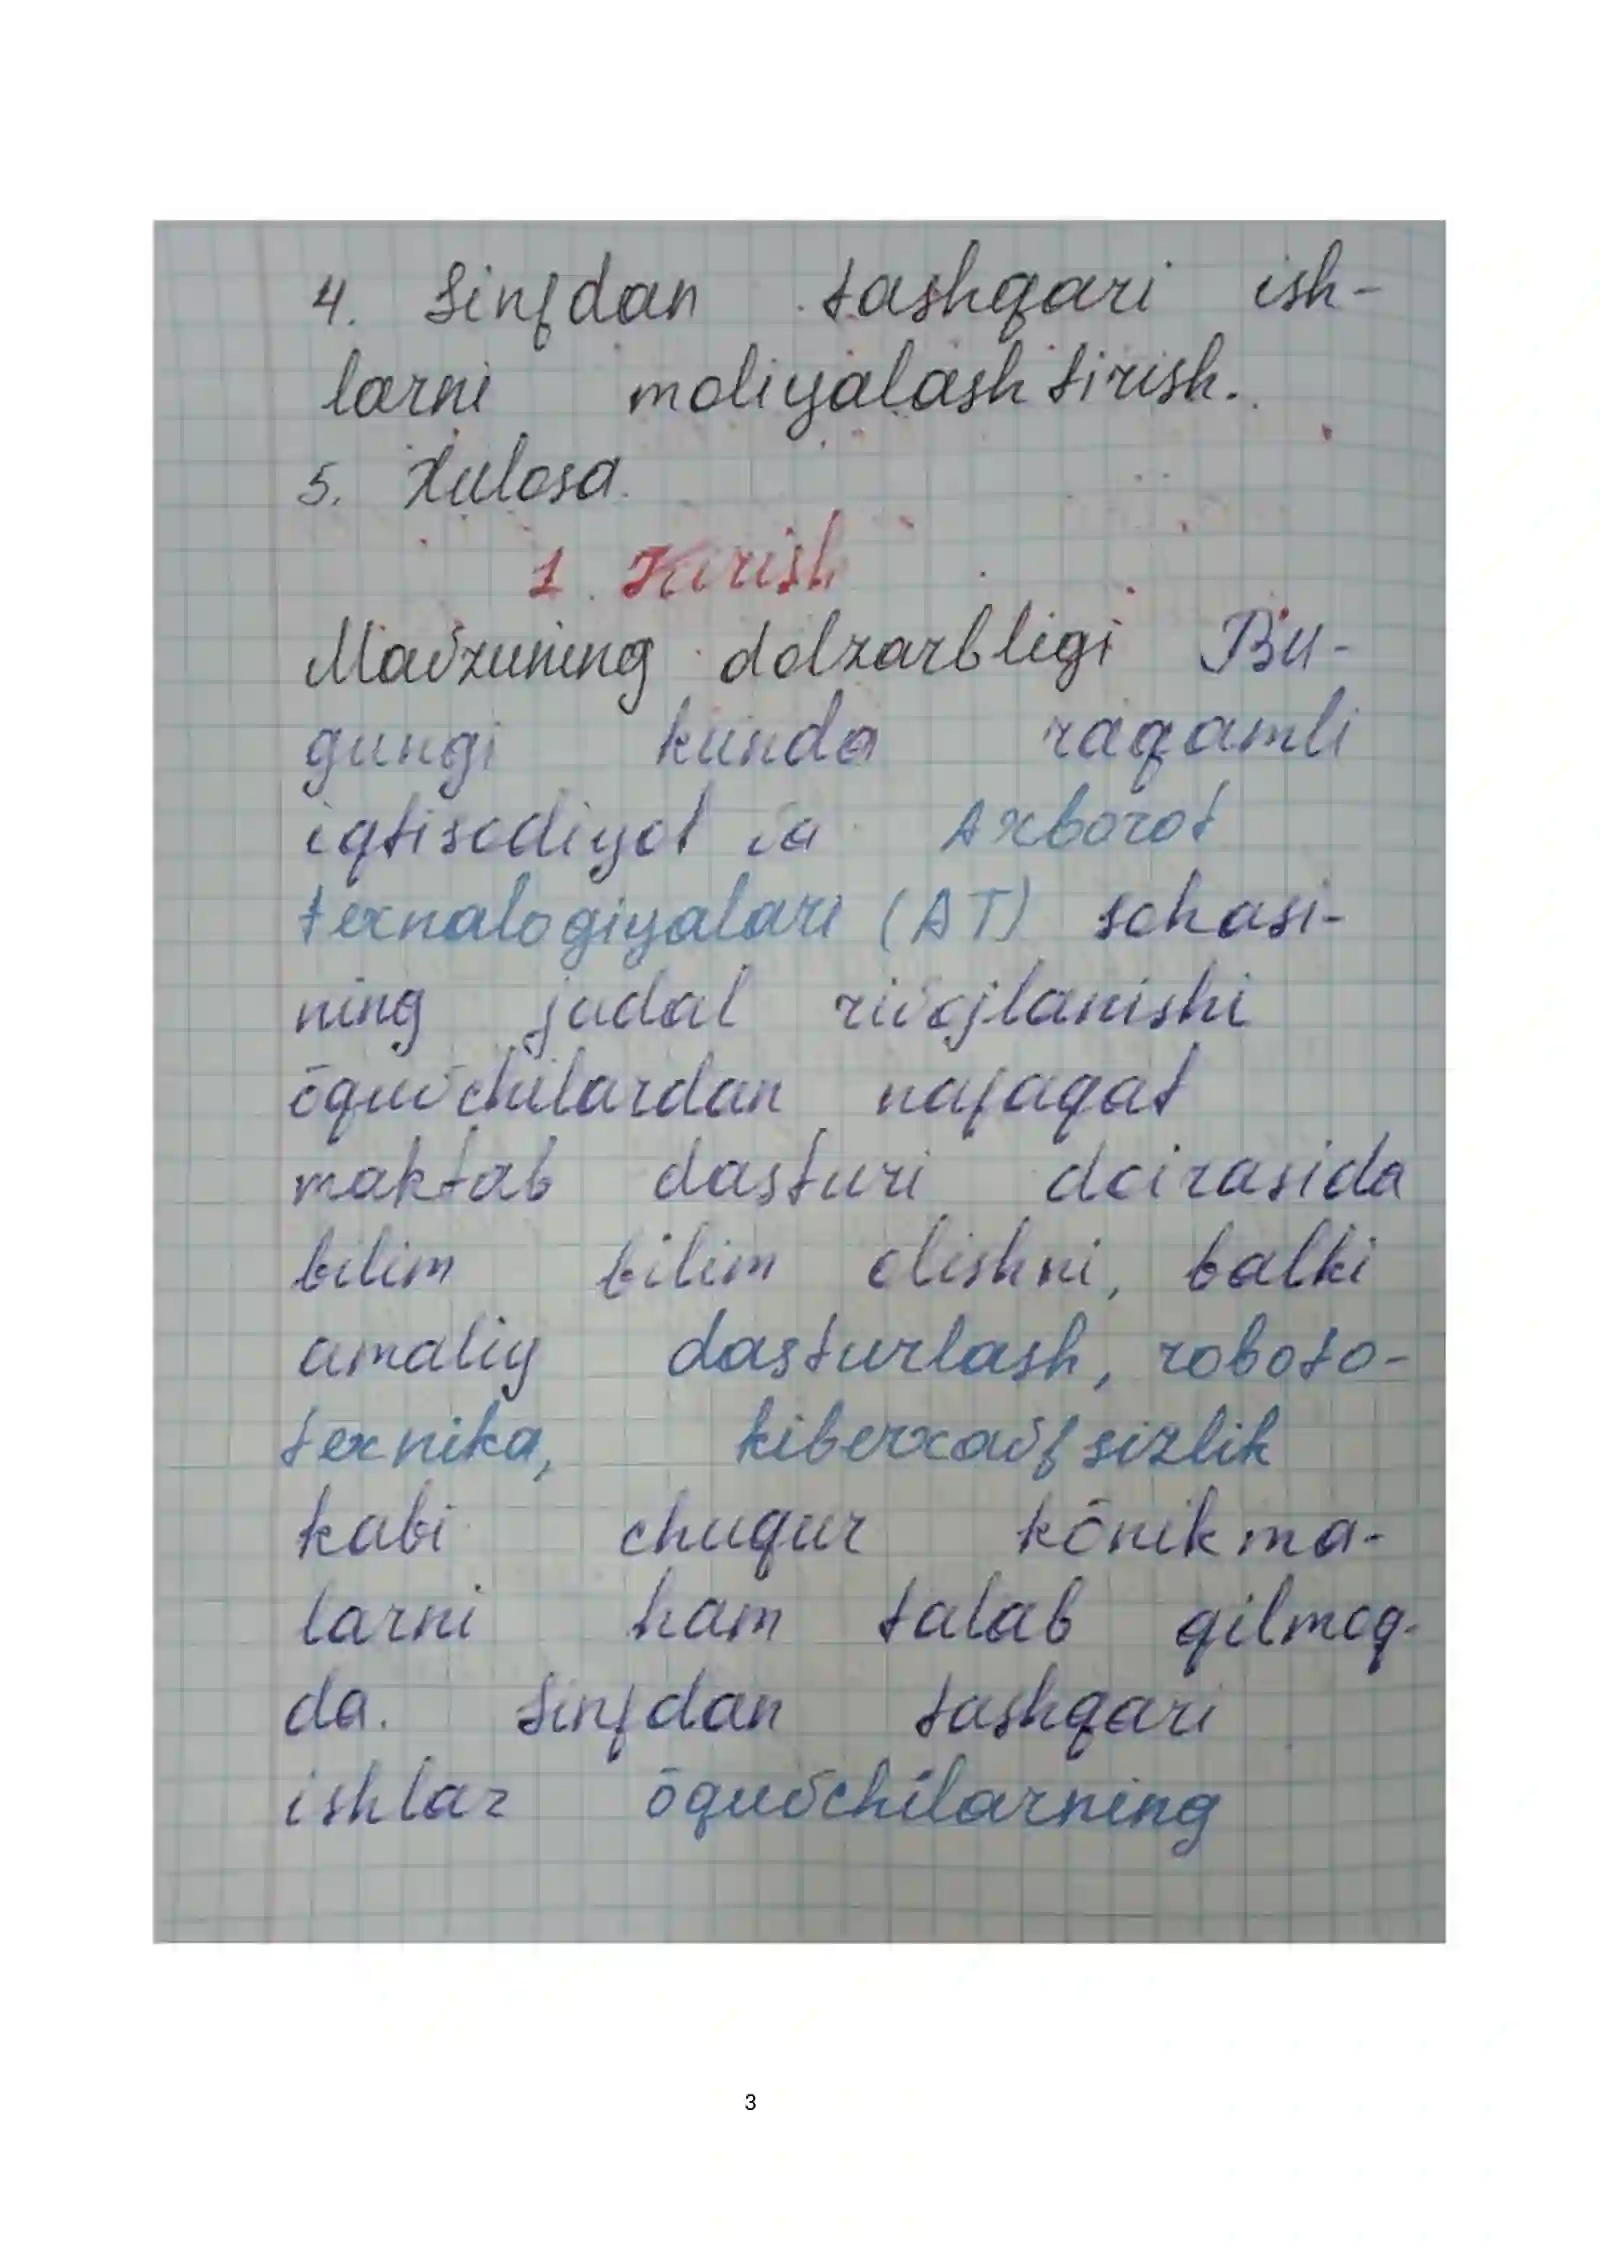 4. Sinfdan tashqari ish-
larni moliyalashtirish.
5. Xulosa.
1. Kirish
Mavzuning dolzarbligi Bu-
gungi kunda raqamli
iqtisodiyot va Axborot
texnalogiyalari (AT) sohasi-
ning jadal rivojlanishi
ōquvchilardan nafaqat
maktab dasturi doirasida
bilim bilim olishni, balki
amaliy dasturlash, roboto-
texnika, kiberxavfsizlik
kabi chuqur kōnikma-
larni ham talab qilmoq-
da. Sinfdan tashqari
ishlar ōquvchilarning
3